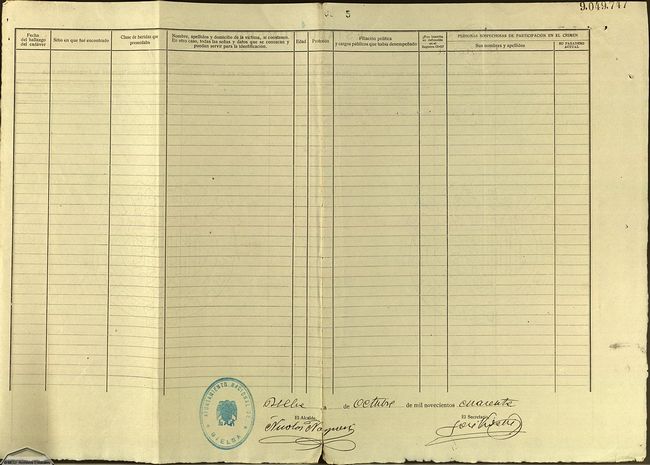 9.049.747
5
Fecha del hallazgo del cadáver
Sitio en que fué encontrado
Clase de heridas que presentaba
Nombre, apellidos y domicilio de la víctima, si constasen.
En otro caso, todas las señas y datos que se conozcan y
puedan servir para la identificación.
Edad
Profesión
Filiación política
y cargos públicos que haya desempeñado
¿Fué inscrita
su defunción
en el
Registro Civil?
PERSONAS SOSPECHOSAS DE PARTICIPACIÓN EN EL CRIMEN
Sus nombres y apellidos
SU PARADERO
ACTUAL
de Octubre de mil novecientos cuarenta
El Alcalde,
El Secretario,
Nicolás
José
AYUNTAMIENTO NACIONAL DE
BIELSA